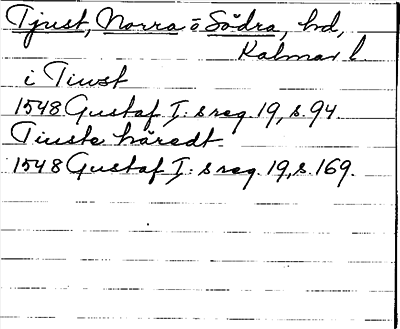 Tjust, Norra o Södra, hd,
Kalmar l.
i Tiwst
1548 Gustaf I:s reg. 19, s. 94.
Tiuste häredt
1548 Gustaf I:s reg. 19, s. 169.